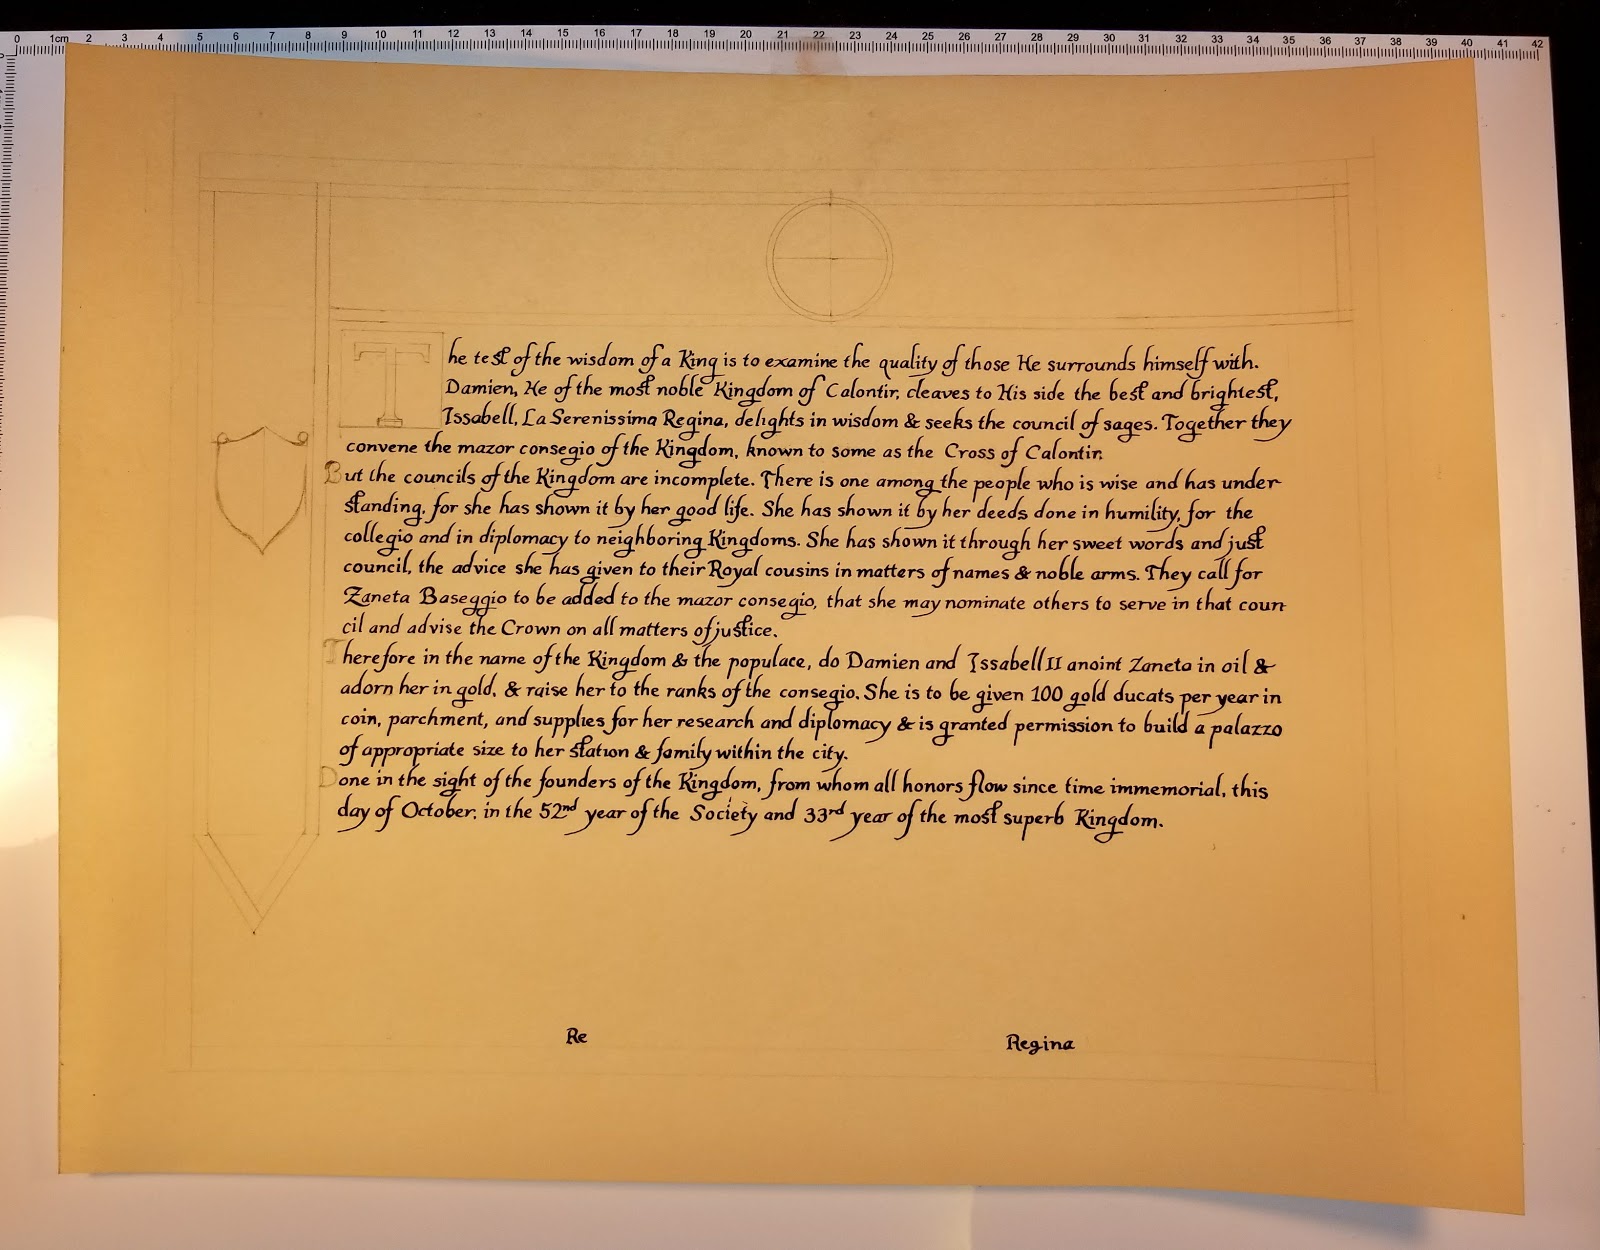 0 1cm 2 3 4 5 6 7 8 9 10 11 12 13 14 15 16 17 18 19 20 21 22 23 24 25 26 27 28 29 30 31 32 33 34 35 36 37 38 39 40 41 42
The test of the wisdom of a King is to examine the quality of those He surrounds himself with.
Damien, He of the most noble Kingdom of Calontir, cleaves to His side the best and brightest,
Issabell, La Serenissima Regina, delights in wisdom & seeks the council of sages. Together they
convene the mazor consegio of the Kingdom, known to some as the Cross of Calontir.
But the councils of the Kingdom are incomplete. There is one among the people who is wise and has under-
standing, for she has shown it by her good life. She has shown it by her deeds done in humility, for the
collegio and in diplomacy to neighboring Kingdoms. She has shown it through her sweet words and just
council, the advice she has given to their Royal cousins in matters of names & noble arms. They call for
Zaneta Baseggio to be added to the mazor consegio, that she may nominate others to serve in that coun-
cil and advise the Crown on all matters of justice.
Therefore in the name of the Kingdom & the populace, do Damien and Issabell II anoint Zaneta in oil &
adorn her in gold, & raise her to the ranks of the consegio. She is to be given 100 gold ducats per year in
coin, parchment, and supplies for her research and diplomacy & is granted permission to build a palazzo
of appropriate size to her station & family within the city.
Done in the sight of the founders of the Kingdom, from whom all honors flow since time immemorial, this
day of October, in the 52nd year of the Society and 33rd year of the most superb Kingdom.
Re Regina